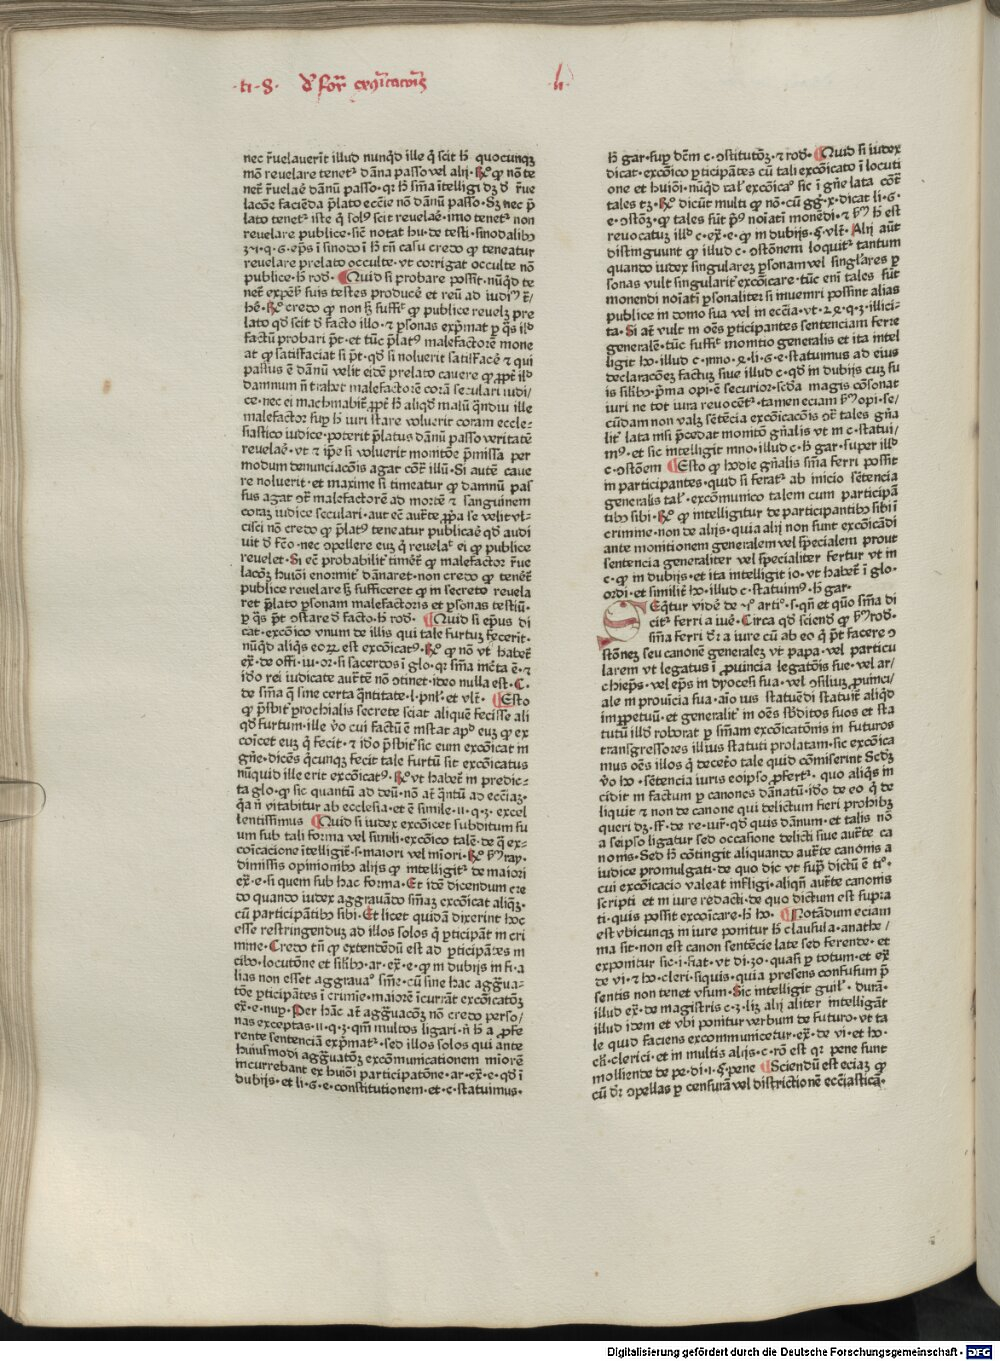 ·ti·8· d' for̄ exc̄icacōis
·li·
nec r̄uelauerīt illud nunqͥd ille q̇ scit h̄ quocunqꝫ
mō reuelare tenetᷣ dāna passo vel alij· Rͦ· ꝙ nō te
net᷑ r̄uelaē dānū passo· qꝛ h̄ sm̄a ītelligi dꝫ d' r̄ue
lacōe facienda p̄lato ecc̄ie nō dānū passo· Sꝫ nec p̄
lato tenetᷣ iste q̇ solꝰ scit reuelaē· imo tenetᷣ non
reuelare publice· sic̄ notat hu· de testi· sinodalibꝰ
publice· h̄ rod· ¶Quid si probare possit· nūqͥd te
net᷑ suis testes producē et reū ad
lato qd' scit d' facto illo· ⁊ ꝑsonas exp̄mat ꝑ q̄s
factū probari p̄t· et tūc p̄latꝰ malefactorē mone
at ꝙ satisfaciat si p̄t· qd' si noluerit satisfacē ⁊ qui
passus ē dānū velit eidē prelato cauere ꝙ
damnum n̄ trahet malefactorē corā seculari iudi⸗
ce· nec ei machinabit᷑ h̄ aliqd' malū q̄ndiu ille
malefactor suꝑ h̄ iuri stare voluerit coram eccle⸗
siastico iudice· poterit p̄latus dānū passo veritatē
reuelaē· vt ⁊ ip̄e si voluerit monitōe p̄missa per
modum denunciacōis agat cōt᷑ illū· Si autē caue
re noluerit· et maxime si timeatur ꝙ damnū pas
sus agat cōt᷑ malefactorē ad mortē ⁊ sanguinem
coraꝫ iudice seculari· aut ec̄ auct̄te se velit vl⸗
cisci nō credo ꝙ p̄latꝰ teneatur publicaē qd' audi
uit d' fc̄o· nec ꝯpellere euꝫ q̇ reuelaᷣ ei ꝙ publice
reuelet· Si ec̄ probabilit᷑ timēt᷑ ꝙ malefactor r̄ue
lacōꝫ huiōi enormit᷑ dānaret· non credo ꝙ tenet᷑
publice reuelare sꝫ sufficeret ꝙ in secreto reuela
ret p̄lato ꝑsonam malefactoris et ꝑsonas testiū·
ꝑ q̄s p̄t ꝯstare d' facto· h̄ rod· ¶Quid si ep̄us di
cat· excōico vnum de illis qui tale furtuꝫ fecerit·
nūqͥd aliq̄s eoꝝ est excōicatꝰ· Rͦ· ꝙ nō vt habet᷑
ex̄· de offi· iu· or· si sacerdos ī glo· qꝛ sm̄a īcerta ē· ⁊
iō rei iudicate auct̄te nō ꝯtinet· ideo nulla est· C·
de sm̄a q̄ sine certa q̄ntitate· l· pnl'· et vlt̄· ¶Esto
ꝙ p̄sbit᷑ prochialis secrete sciat aliquē fecisse ali
qd' furtum· ille v̄o cui factū ē instat apd' euꝫ ꝙ ex
cōicet euꝫ q̇ fecit· ⁊ iō p̄sbit᷑ sic eum excōicat in
gn̄e· dicēs q̇cunqꝫ fecit tale furtū sit excōicatus
nūquid ille erit excōicatꝰ· Rͦ· vt habet᷑ in predic⸗
ta glo· ꝙ sic quantū ad deū· nō at᷑ q̄ntū ad ecc̄iaꝫ·
qͣ n̄ vitabitur ab ecclesia· et ē simile· ij· q· 3· excel
lentissimus ¶Quid si iudex excōicet subditum su
um sub tali forma vel simili· excōico talē· de q̄ ex⸗
cōicacione ītelligit᷑· s· maiori vel mīori· Rͦ· ray·
dimissis opinionibꝰ alijs ꝙ intelligitᷣ de maiori
ex̄· e· si quem sub hac forma· Et idē dicendum cre
do quando iudex aggrauādo sm̄aꝫ excōicat aliqꝫ·
cū participātibꝰ sibi· Et licet quidā dixerint hoc
esse restringenduꝫ ad illos solos q̇ ꝑticipāt in cri
mine· Credo tn̄ ꝙ extendēdū est ad ꝑticipātes in
cibo· locutōne et silibꝰ· ar· ex̄· e· ꝙ in dubijs in fi· a
lias non esset aggrauaᷣ sm̄e· cū sine hac agg̃ua⸗
tōe ꝑticipātes ī crimīe· maiorē īcurrāt excōicatōꝫ
ex̄· e· nup̱· Per hāc at᷑ agg̃uacōꝫ nō credo perso/
nas exceptas· ij· q· 3· qm̄ multos ligari· n̄ h̄ a
rente sentenciā exp̄matᷣ· sed illos solos qui ante
huiusmodi agg̃uatōꝫ excōmunicationem miorē
incurrebant ex huiōi participatōne· ar· ex̄· e· qd' ī
dubijs· et li· 6· e· constitutionem· et· c· statuimus·
h̄ gar· suꝑ dēm c· ꝯstitutōꝫ· ⁊ rod· ¶Quid si iudex
dicat· excōico ꝑticipātes cū tali excōicato ī locuti
one et huiōi· nūqͥd talᷣ excōicaᷣ sic ī gn̄e lata cōt᷑
tales tꝫ· Rͦ· dicūt multi ꝙ nō· cū gg̃· x· dicat li· 6·
e· ꝯstōꝫ· ꝙ tales sūt pͥꝰ noīati monēdi· ⁊ h̄ est
reuocatuꝫ c· ex̄· e· ꝙ in dubijs· §· vlt̄· Alij aūt
distinguunt ꝙ illud c· ꝯstōnem loquitᷣ tantum
quando iudex singularez ꝑsonam vel singl'ares ꝑ
sonas vult singularit᷑ excōicare· tūc eni tales sūt
monendi noīati ꝑsonaliter si inuenri possint alias
publice in domo sua vel in ecc̄ia· vt· q· 3· illici⸗
ta· Si at᷑ vult in oēs ꝑticipantes sentenciam ferre
generalē· tūc suffic̄ monitio generalis et ita intel
ligit ho· illud c· e· statuimus ad eius
declaracōeꝫ factuꝫ siue illud c· qd' in dubijs cuꝫ su
is silibꝰ· p̄ma opi· ē securior· scd'a magis cōsonat
iuri ne tot iura reuocēt᷑· tamen eciam opi· se/
cūdam non valꝫ sētēcia excōicacōis cōt᷑ tales gn̄a
lit᷑ lata nisi p̄cedat monitō gn̄alis vt in c· statui/
mꝰ· et sic intelligit inno· illud c· h̄ gar· super
c· ꝯstōem ¶Esto ꝙ hodie gn̄alis sm̄a ferri possit
in participantes· quid si feratᷣ ab inicio sētencia
generalis talᷣ· excōmunico talem cum participā
tibꝰ sibi· Rͦ· ꝙ intelligitur de participantibꝰ sibi ī
crimine· non de alijs· quia alij non sunt excōicādi
ante monitionem generalem vel specialem prout
sentencia generaliter vel specialiter fertur vt in
c· ꝙ in dubijs· et ita intelligit io· vt habet᷑ ī glo·
ordi· et similit᷑ ho· illud c· statuimꝰ· h̄ gar·
SEqᷓtur vidē de artiᵒ· s· qn̄ et quō sm̄a di
citᷣ ferri a iuē· Circa qd' sciend' ꝙ rod·
sm̄a ferri a iure cū ab eo q̇ p̄t facere ꝯ
stōneꝫ seu canonē generaleꝫ vt papa· vel particu
larem vt legatus ī prouincia legatōis sue· vel ar/
chiep̄s· vel ep̄s in dyocesi sua· vel ꝯsiliuꝫ prouinci/
ale in prouīcia sua· aīo ius statuēdi statuit᷑ aliqd'
imꝑpetuū· et generalit᷑ in oēs sb̄ditos suos et sta
tutū roborat ꝑ sm̄am excōicatōnis in futuros
transgressores illius statuti prolatam· sic excōica
mus oēs illos q̇ decet̄o tale quid cōmiserint Sed'ꝫ
v̄o ho· sētencia iuris eoipso ꝓfertᷣ· quo aliq̄s in
cidit in factum ꝑ canones dānatū· iō de eo q̇ de
liquit ⁊ non de canone qui delictum fieri prohibꝫ
queri dꝫ· ff· de re· iur̄· qd' quis dānum· et talis nō
a seipso ligatur sed occasione delicti siue auct̄te ca
nonis· Sed h̄ cōtingit aliquando auct̄te canonis a
iudice promulgati· de quo dic vt sup̄ dictū ē tiᵒ·
cui excōicacio valeat infligi· aliqn̄ auct̄te canonis
scripti et in iure redacti· de quo dictum est supra
ti· quis possit excōicare· h̄ ho· ¶Notādum eciam
est vbicunqꝫ in iure ponitur h̄ clausula· anathe/
ma sit· non est canon sentēcie late sed ferende· et
exponitur sic· i· fiat· vt di· 30· quasi ꝑ totum· et ex̄
de vi· ⁊ ho· cleri· siquis· quia presens confusum p̄
sentis non tenet vsum· Sic intelligit guil'· durā·
illud ex̄· de magistris c· 3· licꝫ alij aliter intelligāt
illud idem et vbi ponitur verbum de futuro· vt ta
le quid faciens excommunicetur· ex̄· de vi· et ho·
cl'· clerici· et in multis alijs· c· rō est qꝛ pene sunt
molliende de pe· di· i· §· pene ¶Sciendū est eciaꝫ ꝙ
cū ꝯpellas ꝑ censurā vel districtionē ecc̄iasticā·
Digitalisierung gefördert durch die Deutsche Forschungsgemeinschaft - DFG